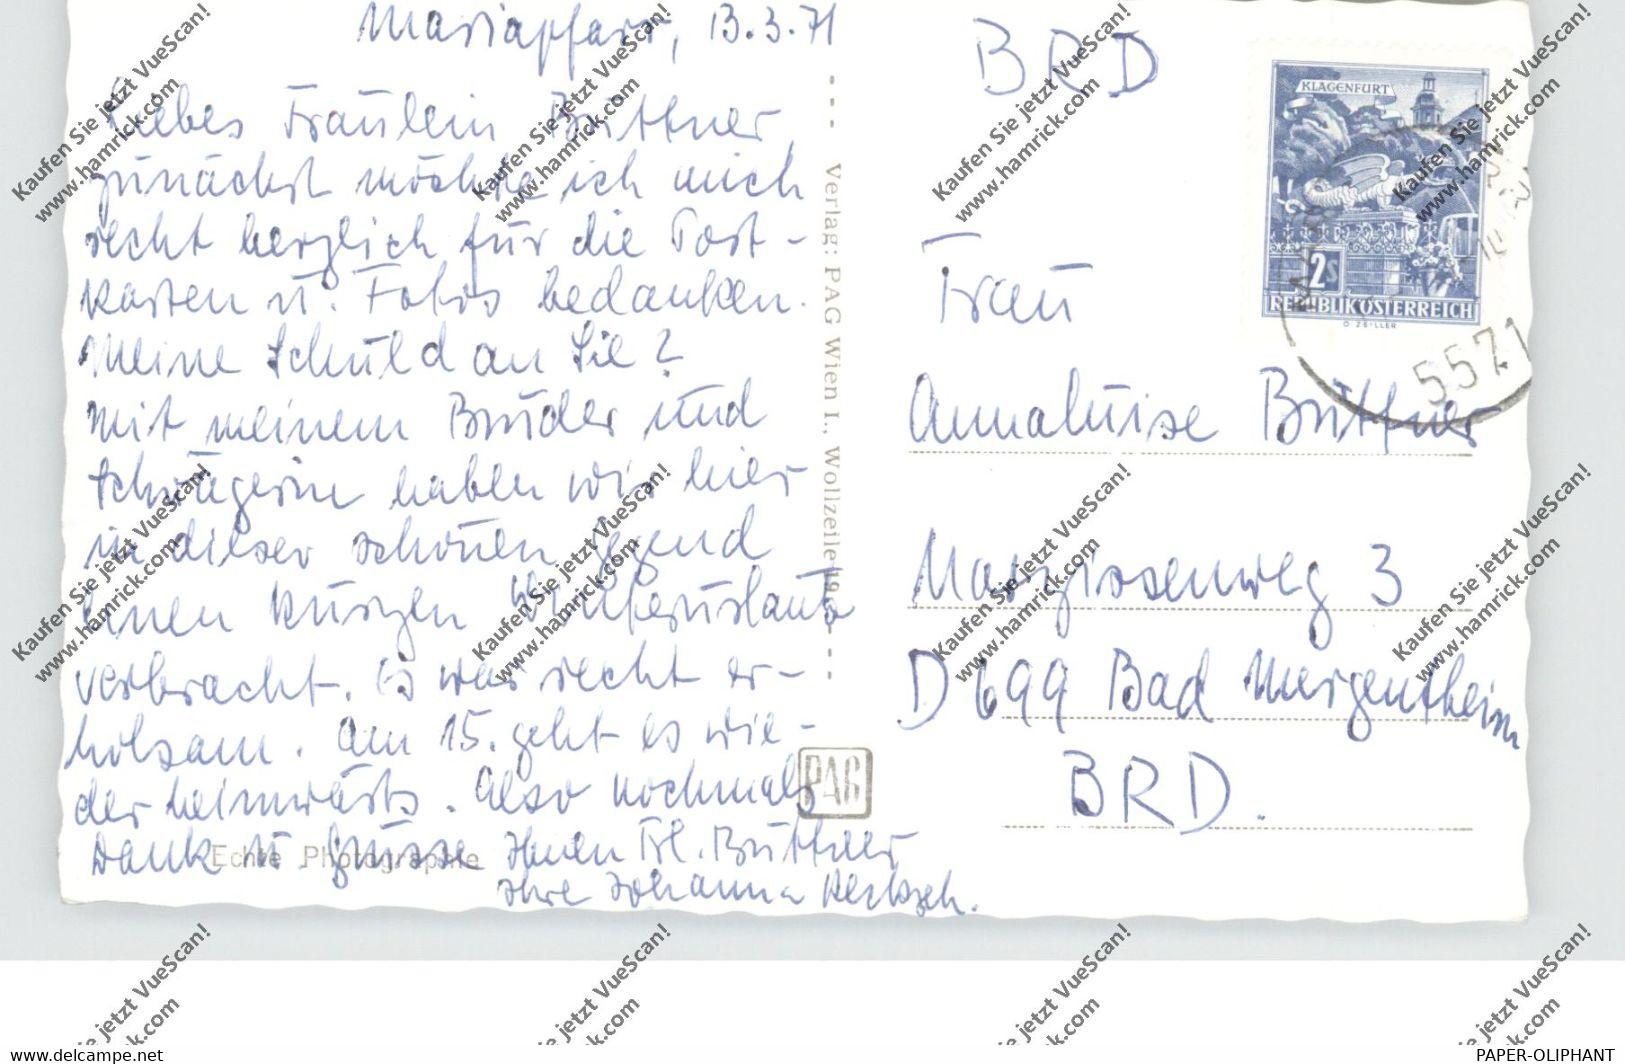 Mariapfarr, 13.3.71
Liebes Fräulein Büttner
zunächst möchte ich mich
recht herzlich für die Post-
karten u. Fotos bedanken.
Meine Schuld an Sie?
Mit meinem Bruder und
Schwägerin haben wir hier
in dieser schönen Gegend
einen kurzen Winterurlaub
verbracht. Es war recht er-
holsam. Am 15. geht es wie-
der heimwärts. Also nochmals
Dank u Grüsse Ihnen Frl. Büttner
Ihre Johanna
Echte Photographie
Verlag: PAG Wien I., Wollzeile 19
PAG
BRD
KLAGENFURT
2S
REPUBLIK ÖSTERREICH
5571
Frau
Annaluise Büttner
Narzissenweg 3
D 699 Bad Mergentheim
BRD.
Kaufen Sie jetzt VueScan!
www.hamrick.com
www.delcampe.net
PAPER-OLIPHANT